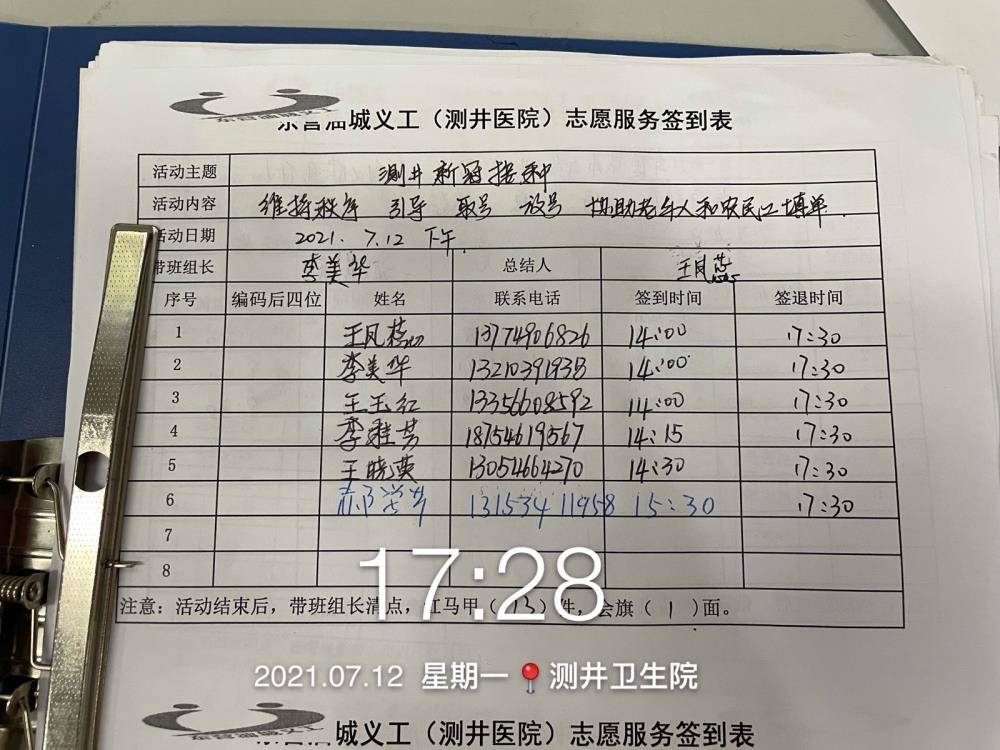 东营油城义工（测井医院）志愿服务签到表
活动主题 测井新冠接种
活动内容 维持秩序 引导 取号 放号 协助老年人和农民工填单.
活动日期 2021. 7.12 下午.
带班组长 李美华 总结人 王凤蕊
序号 编码后四位 姓名 联系电话 签到时间 签退时间
1 王凤蕊 13774906826 14:00 17:30
2 李美华 14:00 17:30
3 王玉红 13356608592 14:00 17:30
4 李雅芳 18754619567 14:15 17:30
5 王晓英 13054664270 14:30 17:30
6 13153411958 15:30 17:30
7
8
注意：活动结束后，带班组长清点，红马甲（13）件，会旗（1）面。
17:28
2021.07.12 星期一 测井卫生院
东营油城义工（测井医院）志愿服务签到表